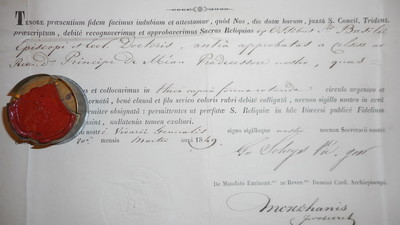 Tenore præsentium fidem facimus indubiam et attestamur, quod Nos, die data harum, juxtà S. Concil. Trident.
præscriptum, debitè recognoverimus et approbaverimus Sacras Reliquias ex Ossibus Sti Basilii
Episcopi et Eccl. Doctoris, antea approbatas a Celsis. ac
Revmo Principi De Méan Prædecessore nostro, quas
et collocavimus in theca cuprea formæ rotundæ circulo argenteo et
ornatâ, benè clausâ et filo serico coloris rubri debitè colligatâ, necnon sigillo nostro in cerâ
firmiter obsignatâ: permittentes ut præfatæ S. Reliquiæ in hâc Diœcesi publicæ Fidelium
exponi, nullatenùs tamen exaltari.
nostri Vicarii Generalis signo sigilloque nostro necnon Secretarii nostri
mensis Martii anni 1849.
De Mandato Eminent. ac Rever. Domini Card. Archiepiscopi.